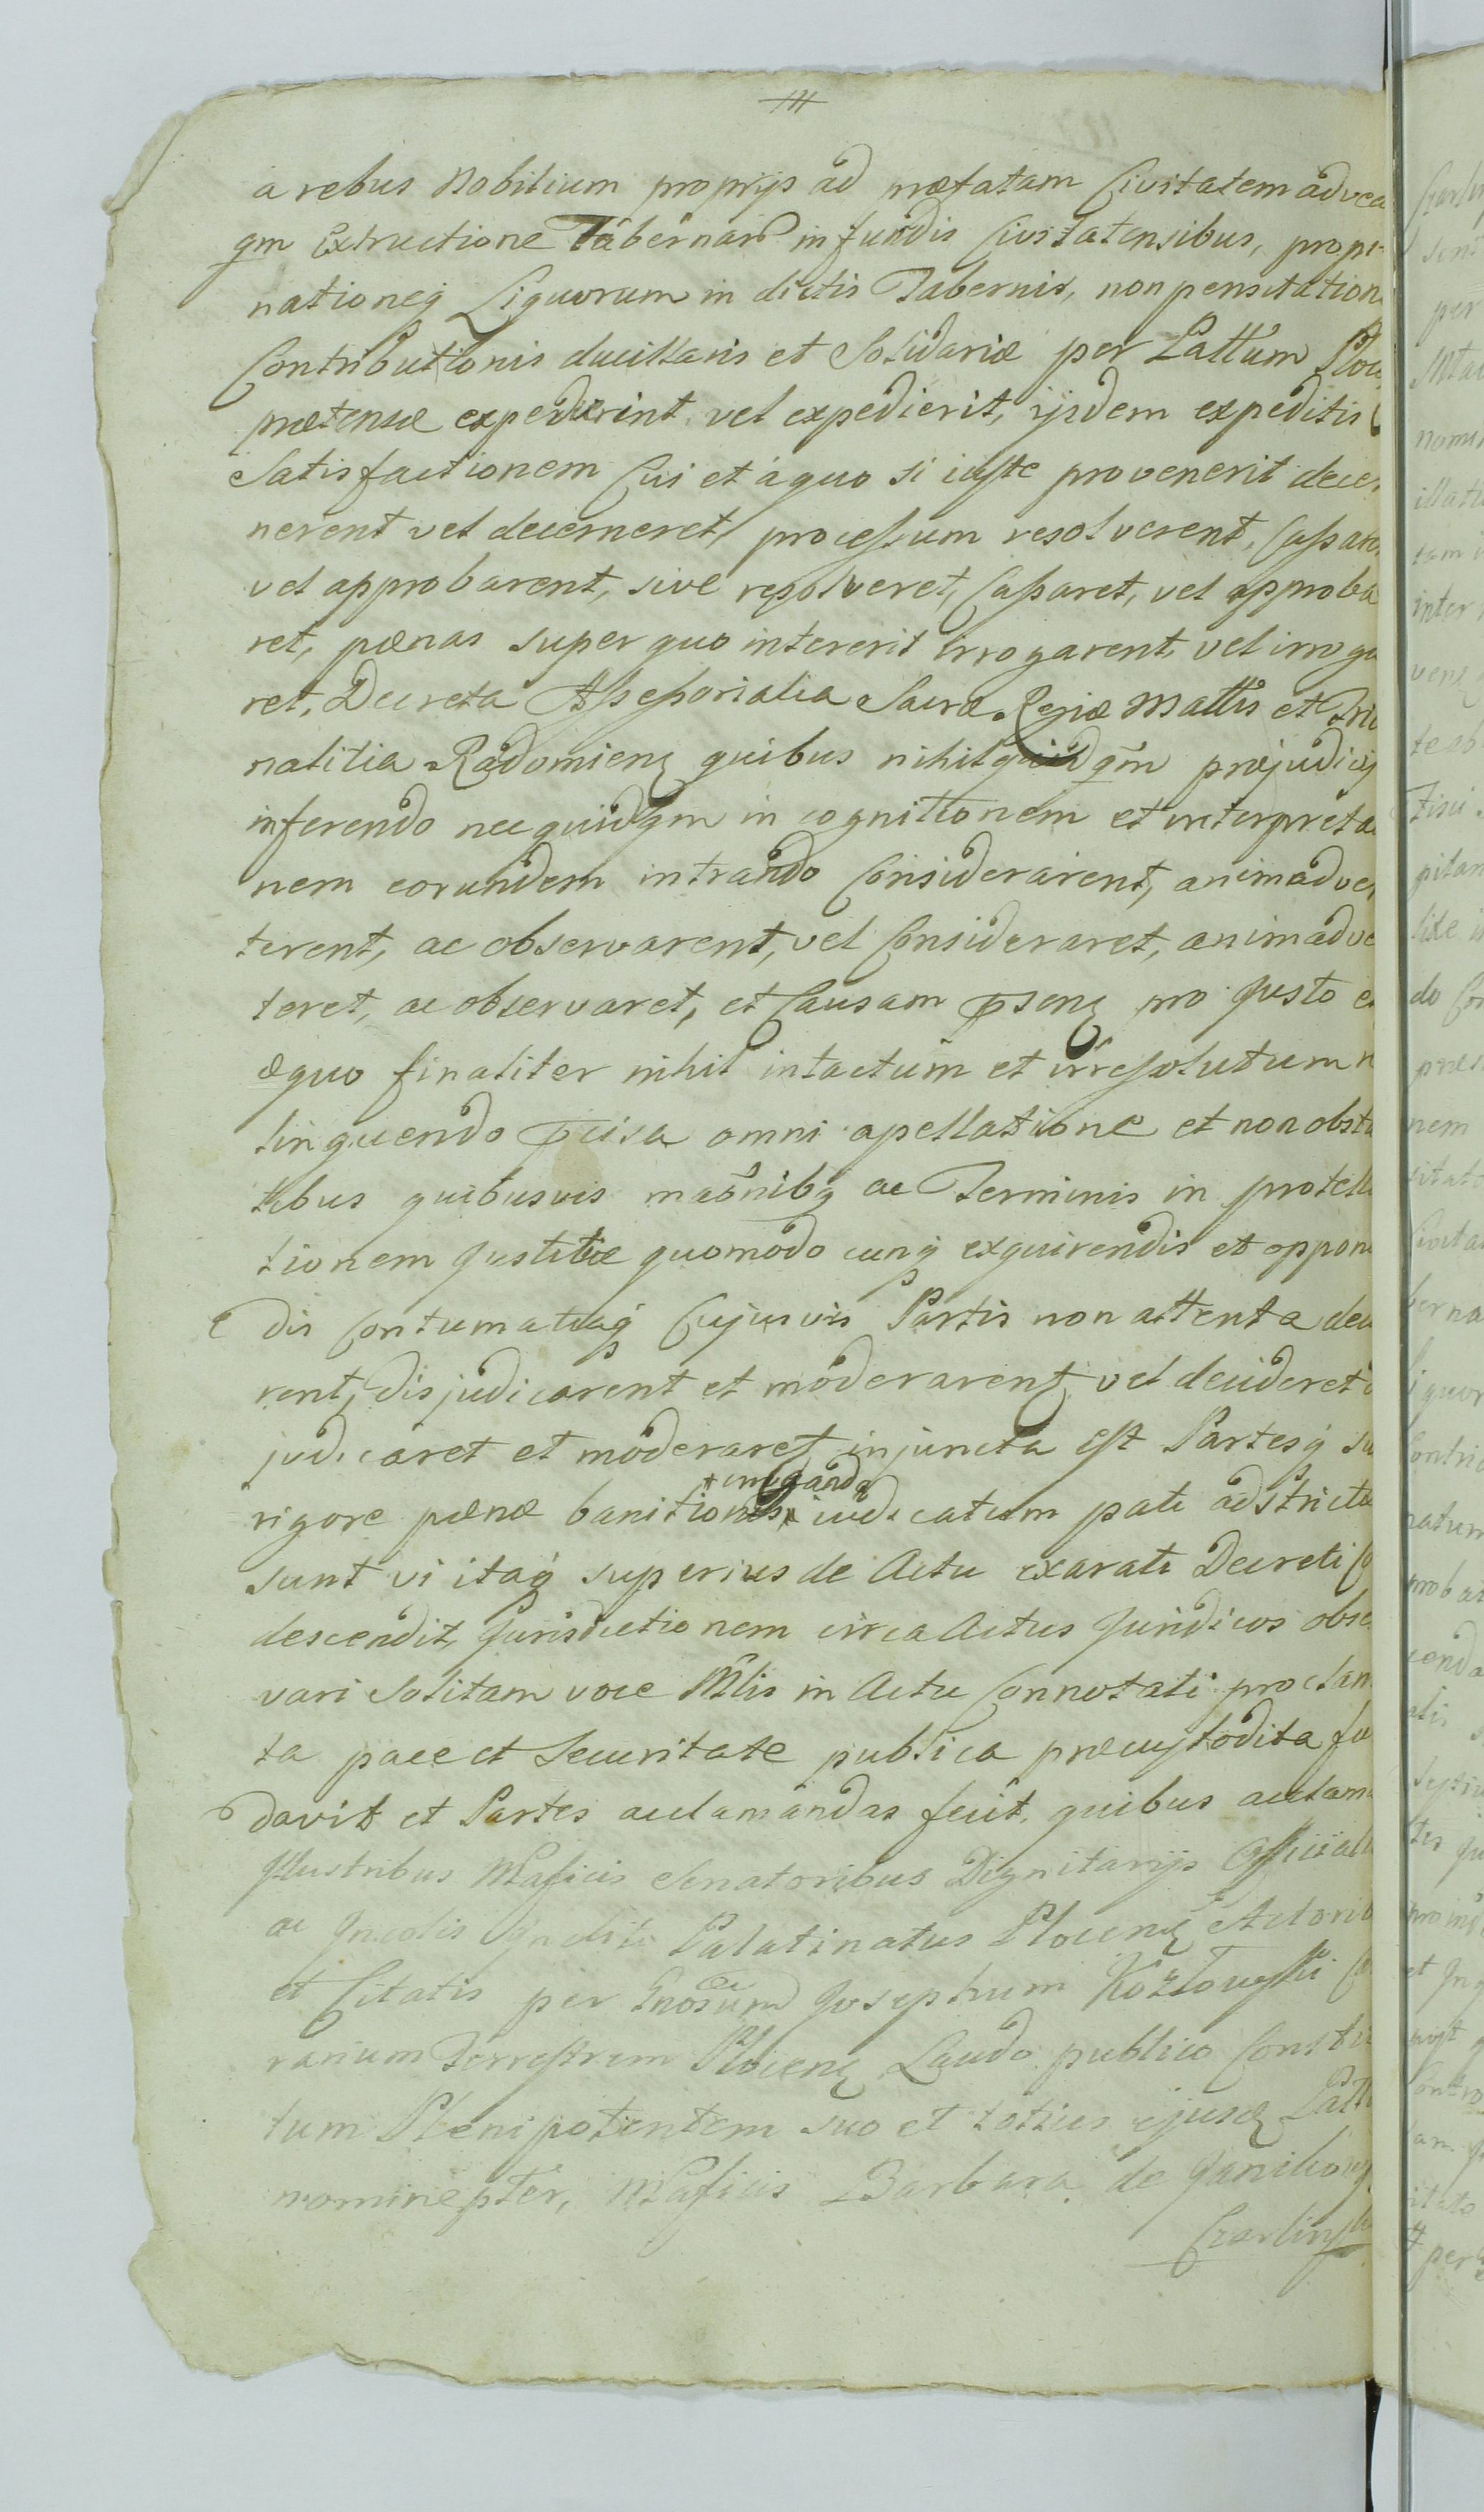 a rebus Nobilium proprijs ad præfatam Civitatem advea
qm Extructione Tabernarũ in fundis Civitatensibus, propi-
nationeq Liquorum in dictis Tabernis, non pensitation
Contributionis ducillaris et Solidariæ per Pattum Ploc
prætensæ expedierint vel expedierit, ijsdem expeditis
Satisfactionem Cui et a quo si iuste provenerit decer
nerent vel decerneret, processum resolverent, Cassaren
vel approbarent, sive resolveret, Cassaret, vel approba
ret, pænas super quo intererit irrogarent, vel irroga
ret, Decreta Assessorialia Sacræ Regiæ Mattis et Tribu
nalitia Radomienę quibus nihil quidqm præjudicij
inferendo nec quidqm in cognitionem et interpretatio
nem eorundem intrando Considerarent, animadver
terent, ac observarent, vel Consideraret, animadve
teret, ac observaret, et Causam psenę pro justo et
æquo finaliter nihil intactum et irresolutum re
linquendo pcisa omni apellatione et non obsta
tibus quibusvis mãonibq ac Terminis in protella
tionem Justitiæ quomodo cunq exquirendis et oppone
dis Contumatiaq Cujusvis Partis non attenta deci
rent, disjudicarent et moderarent, vel decideret
judicaret et moderaret injuncta est Partesq su
+ irrogandæ
rigore pænæ banitionis + iudicatum pati adstrictæ
sunt vi itaq superius de Actu exarati Decreti Co
descendit, Jurisdictionem circa Actus Juridicos obse
vari Solitam voce Mtlis in Actu Connotati proclam
ta pace et Securitate publica præcustodita fu
davit et Partes acclamandas fecit, quibus acclama
Illustribus Maficis Senatoribus Dignitarijs Officiali
ac Incolis Incliti Palatinatus Plocenę Actorib
et Citatis per Gnosum Josephum Kozłowski
rarium Terrestrem Plocenę Laudo publico Constitu
tum Plenipotentem suo et totius ejusd Patt
nomine pter, Maficis Barbara de Janikow
Czarlinsk